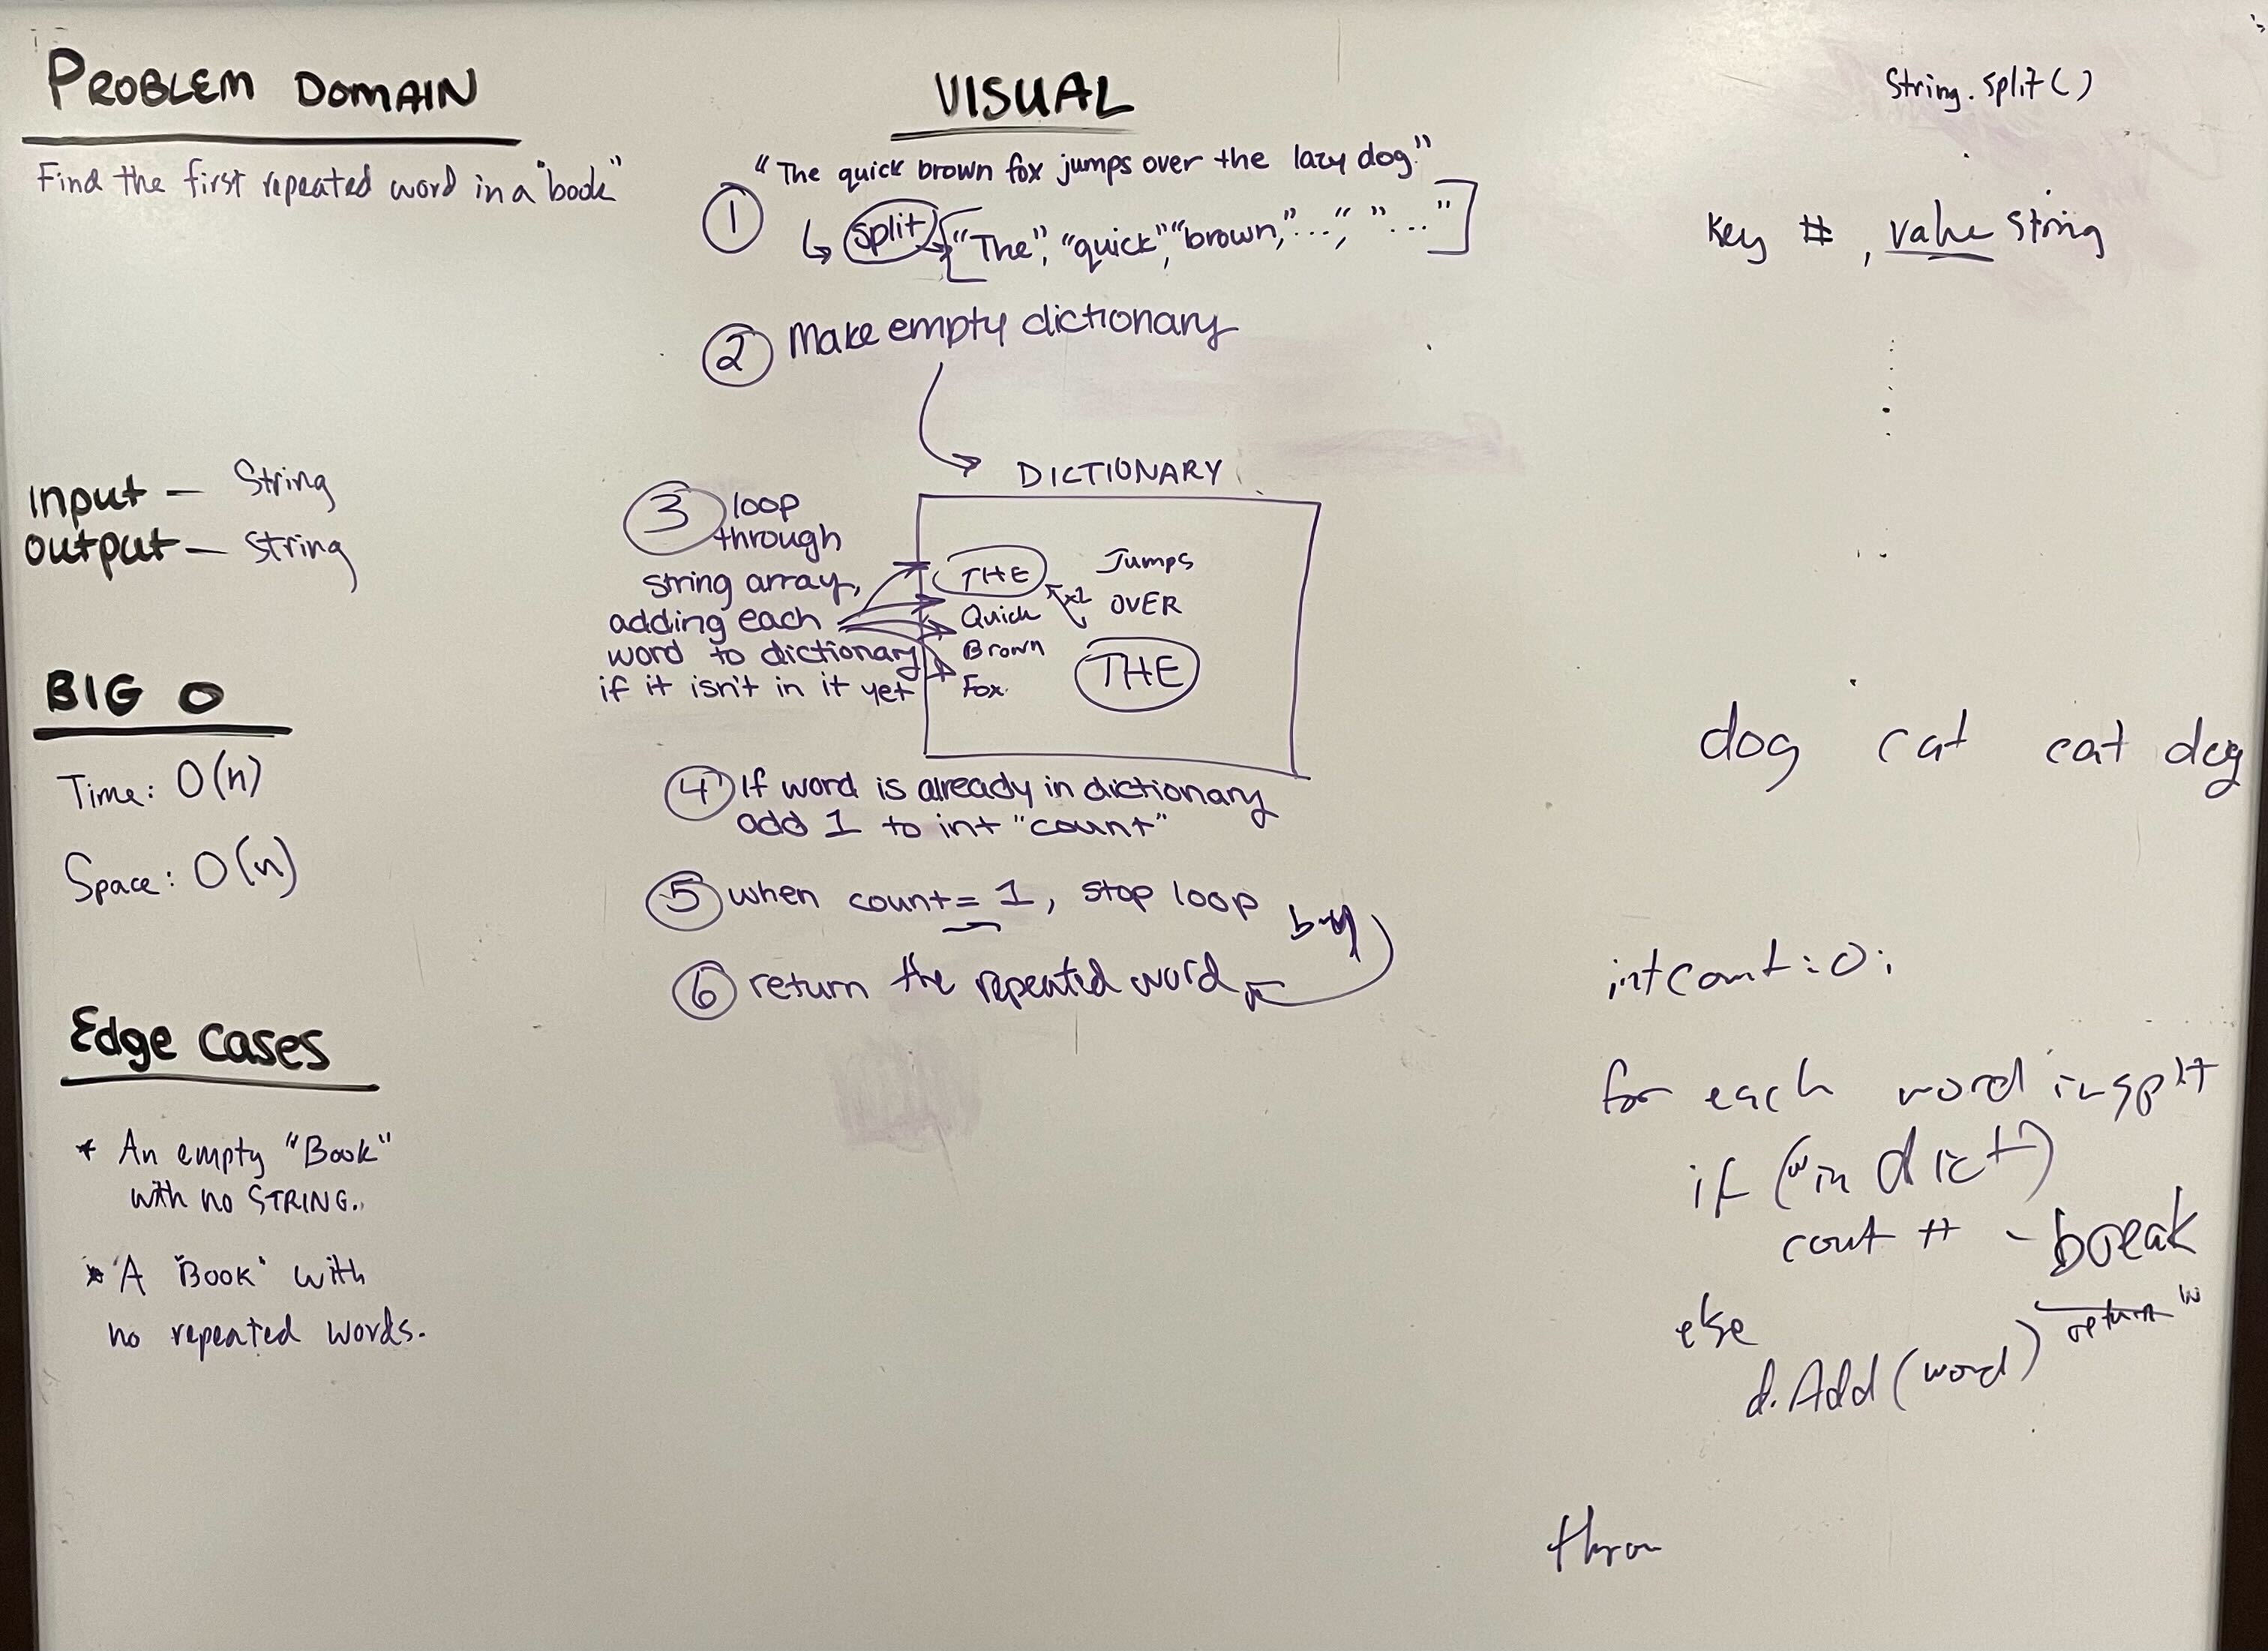 PROBLEM DOMAIN
Find the first repeated word in a "book"
input - String
output - String
BIG O
Time: O(n)
Space: O(n)
Edge Cases
* An empty "Book"
with no STRING.
* A "Book" with
no repeated words.
VISUAL
"The quick brown fox jumps over the lazy dog."
1
split ["The", "quick", "brown," "...", "..."]
2 Make empty dictionary
DICTIONARY
3 loop
through
string array,
adding each
word to dictionary
if it isn't in it yet
THE
Quick
Brown
Fox.
Jumps
OVER
THE
4 If word is already in dictionary
add 1 to int "count"
5 when count = 1, stop loop
6 return the repeated word
String.split()
Key #, value string
dog cat cat dog
int count = 0;
for each word in split
if (w in dict)
cout ++ - break
return w
else
d.Add(word)